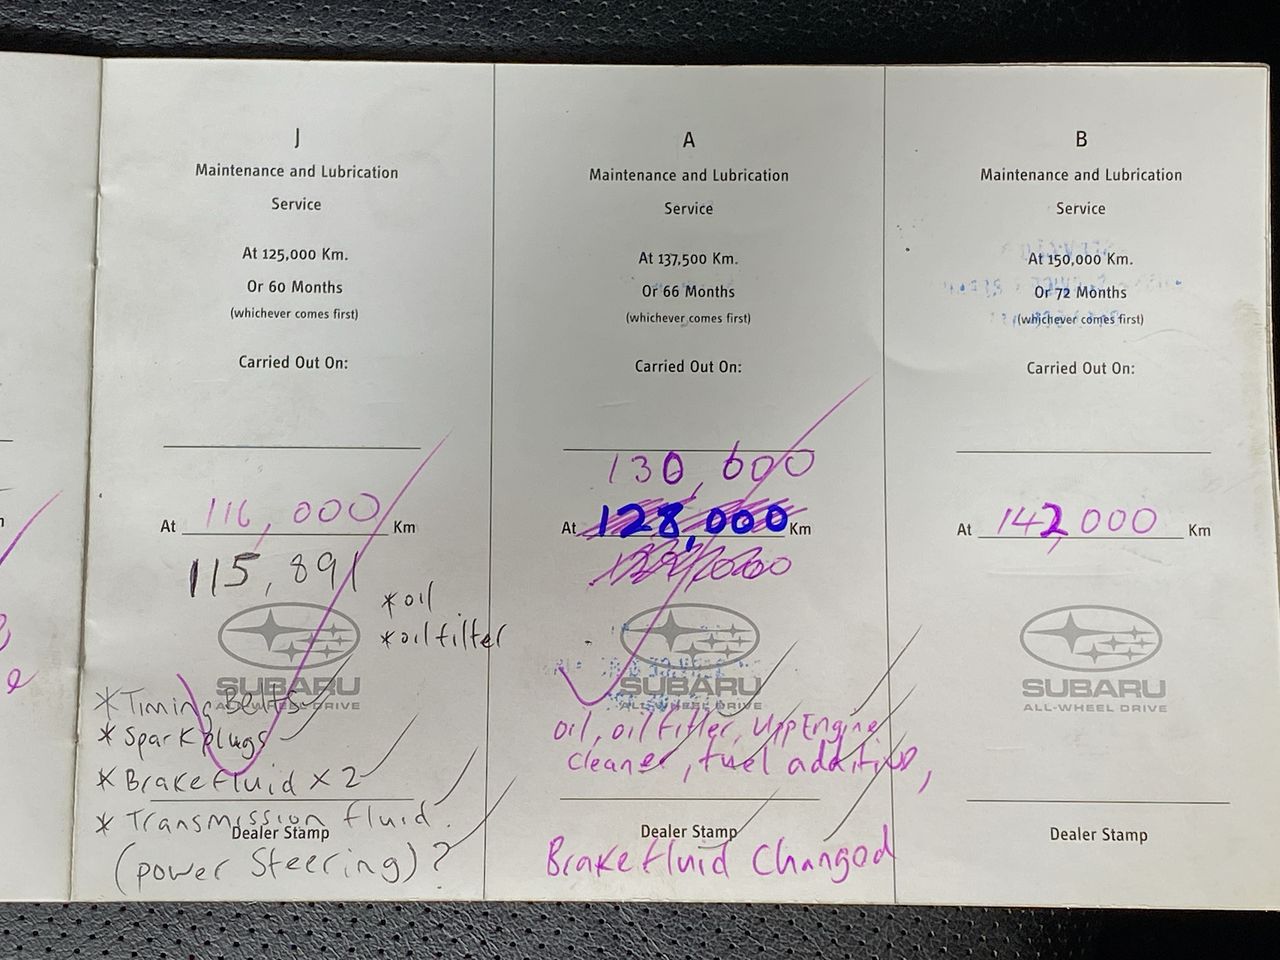 J
Maintenance and Lubrication
Service
At 125,000 Km.
Or 60 Months
(whichever comes first)
Carried Out On:
At 116,000 Km
115,891
* oil
* oil filter
SUBARU
ALL-WHEEL DRIVE
* Timing Belts
* Spark plugs
* Brake fluid x 2
* Transmission fluid.
Dealer Stamp
(power Steering)?
A
Maintenance and Lubrication
Service
At 137,500 Km.
Or 66 Months
(whichever comes first)
Carried Out On:
130,600
At 128,000 Km
SUBARU
ALL-WHEEL DRIVE
oil, oil filter, Upp Engine
cleaner, fuel additive,
Dealer Stamp
Brake fluid Changed
B
Maintenance and Lubrication
Service
At 150,000 Km.
Or 72 Months
(whichever comes first)
Carried Out On:
At 142,000 Km
SUBARU
ALL-WHEEL DRIVE
Dealer Stamp